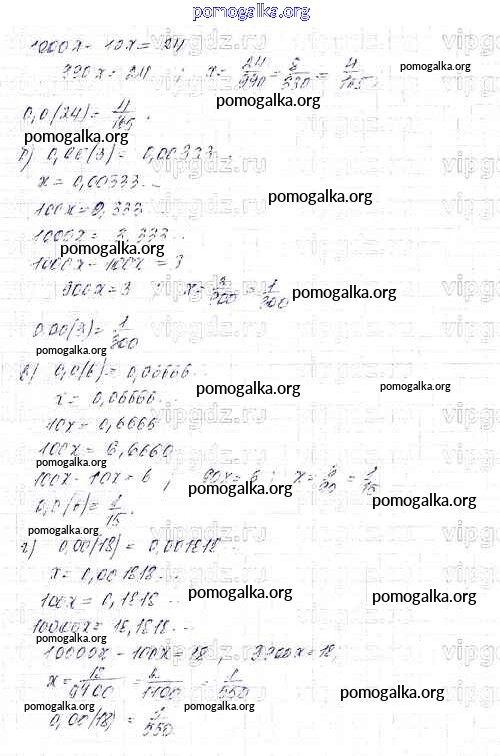 pomogalka.org
1000x - 10x = 24
990x = 24 ; x = 24/990 = 8/330 = 4/165
pomogalka.org
pomogalka.org
0,0(24) = 4/165.
pomogalka.org
0,00(3) = 0,00333...
x = 0,00333...
pomogalka.org
100x = 0,333...
1000x = 3,333...
pomogalka.org
1000x - 100x = 3
900x = 3 ; x = 3/900 = 1/300
pomogalka.org
0,00(3) = 1/300
pomogalka.org
в) 0,0(6) = 0,06666...
pomogalka.org
pomogalka.org
x = 0,06666...
10x = 0,6666
100x = 6,6660
pomogalka.org
100x - 10x = 6 , 90x = 6 ; x = 6/90 = 1/15
pomogalka.org
0,0(6) = 1/15.
pomogalka.org
г) 0,00(18) = 0,001818...
x = 0,001818...
100x = 0,1818...
pomogalka.org
pomogalka.org
10000x = 18,1818...
10000x - 100x = 18 , 9900x = 18;
x = 18/9900 = 2/1100 = 1/550
pomogalka.org
pomogalka.org
pomogalka.org
0,00(18) = 1/550
vipgdz.ru